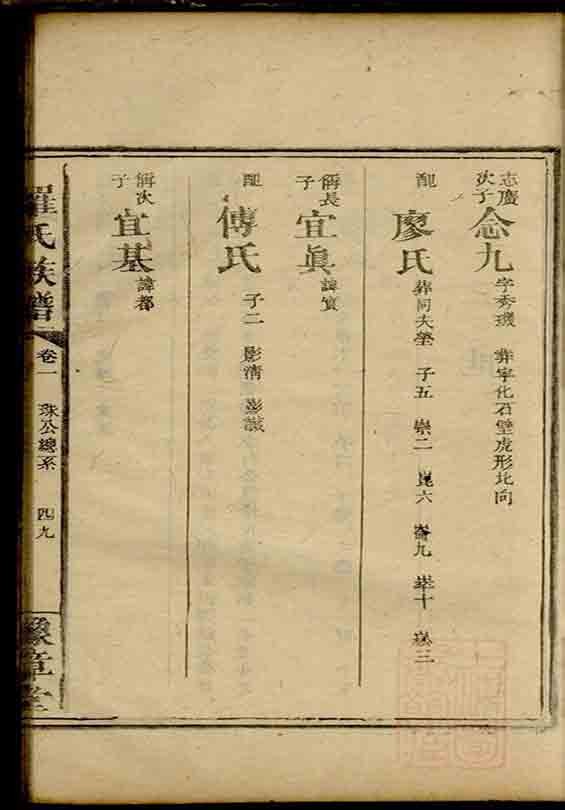 志廣次子 念九 字秀璣 葬寧化石壁虎形北向
配 廖氏 葬同夫塋 子五 崇二 崑六 九 十 三
偁長子 宜眞 諱實
配 傅氏 子二 影清 彭誠
偁次子 宜基 諱都
羅氏族譜 卷一 珠公總系 四九 豫章堂